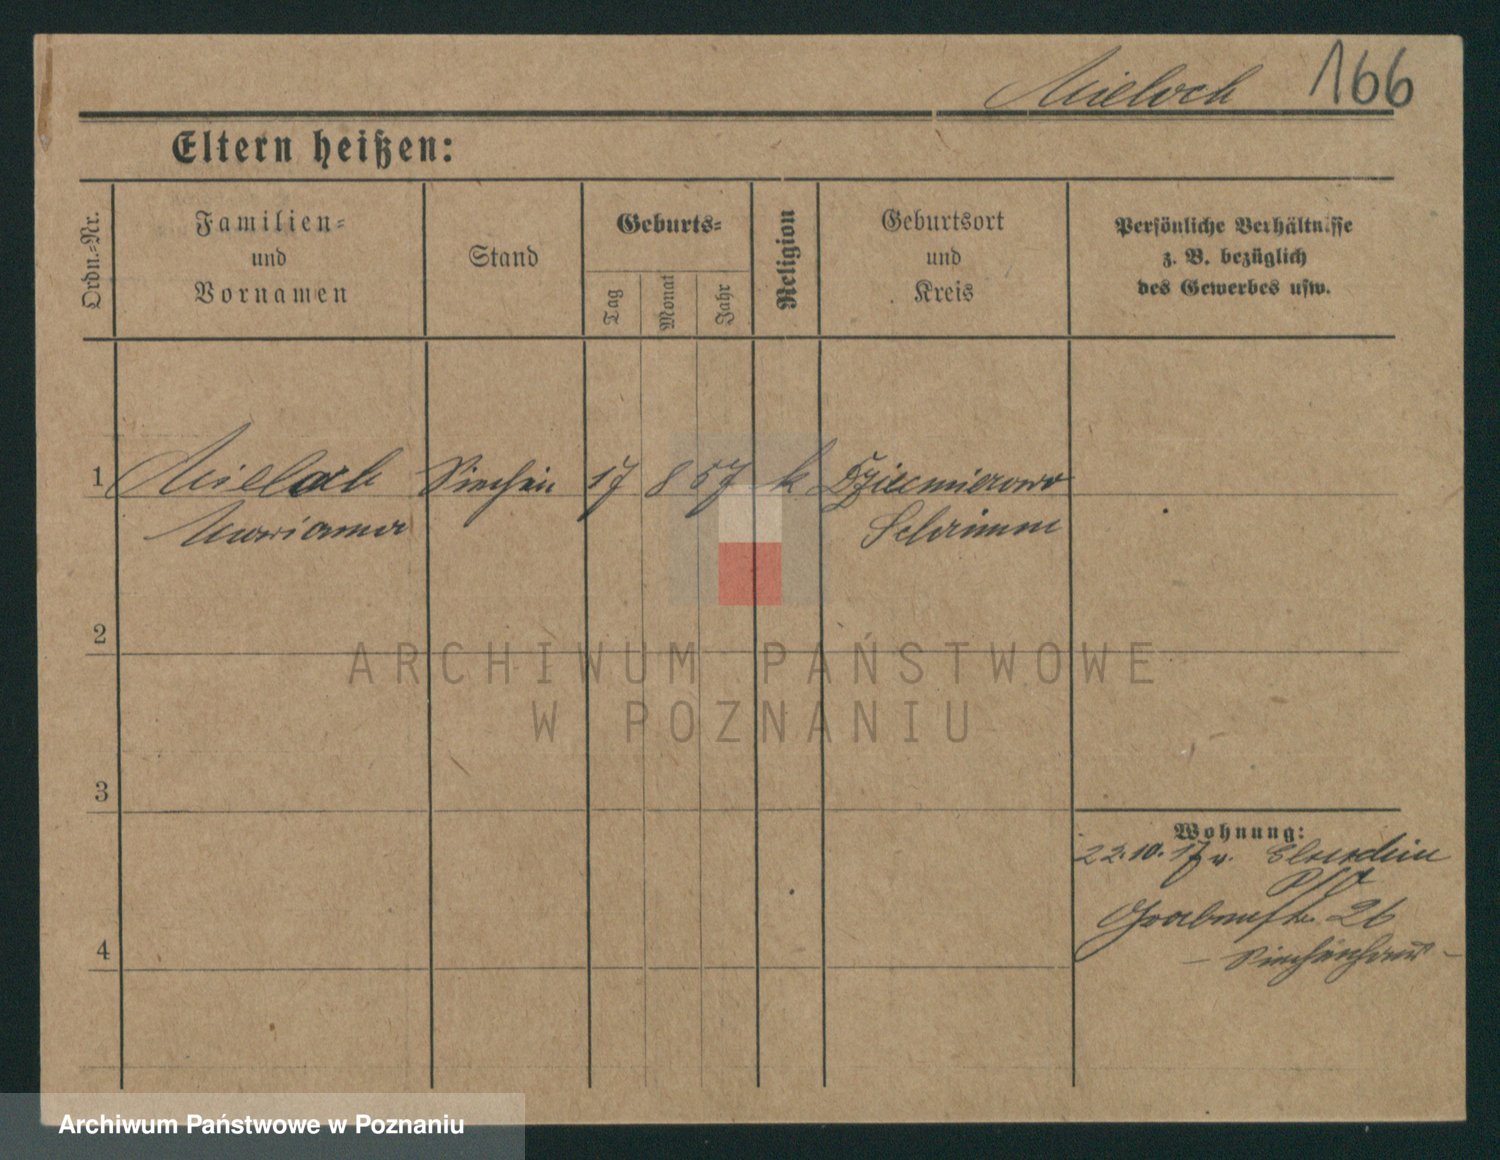 Mieloch 166
Eltern heißen:
Ordn.-Nr.
Familien-
und
Vornamen
Stand
Geburts-
Tag
Monat
Jahr
Religion
Geburtsort
und
Kreis
Persönliche Verhältnisse
z. B. bezüglich
des Gewerbes usw.
1 Mieloch Siechin 17 8 57 k Dziecmierowo
Marianna Schrimm
2
ARCHIWUM PAŃSTWOWE
W POZNANIU
3
Wohnung:
22.10.17 v.
Grabenstr. 26
- Siechenhaus -
4
Archiwum Państwowe w Poznaniu